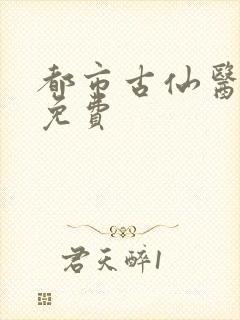 都市古仙醫
免費
君天醉1